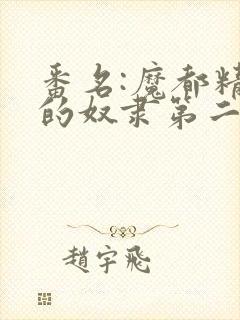 番名:魔都精
的奴隶第二
趙宇飛